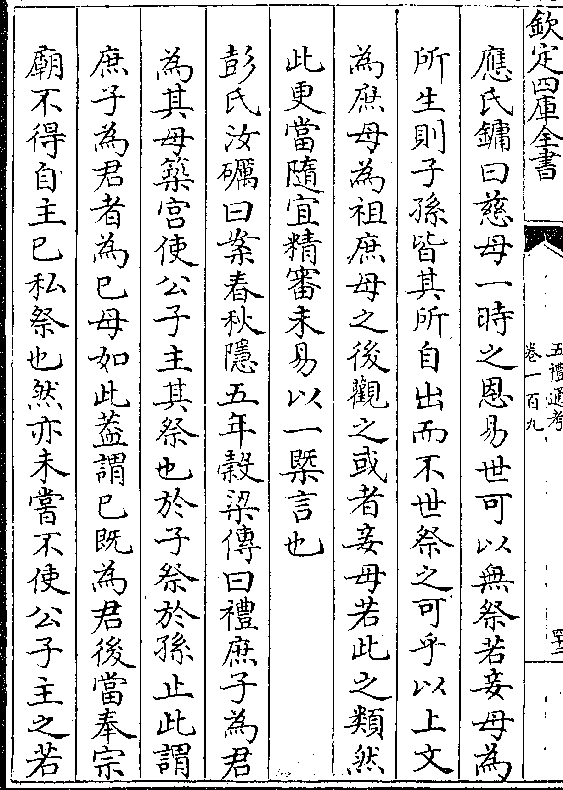 欽定四庫全書
五禮通考
卷一百九
應氏鏞曰慈母一時之恩易世可以無祭若妾母為
所生則子孫皆其所自出而不世祭之可乎以上文
為庶母為祖庶母之後觀之或者妾母若此之類然
此更當隨宜精審未易以一槩言也
彭氏汝礪曰案春秋隱五年榖梁傳曰禮庶子為君
為其母築宮使公子主其祭也於子祭於孫止此謂
庶子為君者為已母如此葢謂已既為君後當奉宗
廟不得自主已私祭也然亦未嘗不使公子主之若